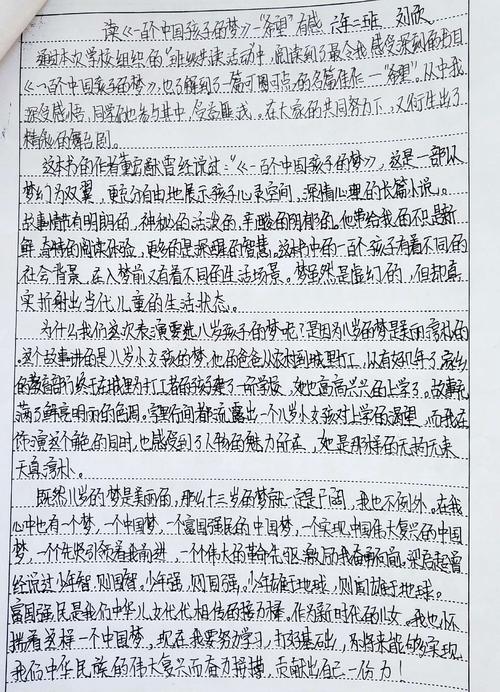 读《一百个中国孩子的梦》—“希望”有感 六年二班 刘欣
通过本次学校组织的“班级共读活动中,阅读到了最令我感受深刻的书目
《一百个中国孩子的梦》,也了解到了一篇可圈可点的名篇佳作—“希望”。从中我
深受感悟,同学们也参与其中,受益匪浅。在大家的共同努力下,又衍生出了
精彩的舞台剧。
这本书的作者董宏猷曾经说过:“《一百个中国孩子的梦》,这是一部以
梦幻为双翼,更充分自由地展示孩子心灵空间,深情心理的长篇小说”。
故事情节有明朗的,神秘的,活泼的,辛酸的,阴郁的。他带给我的不只是新
鲜、奇特的阅读体验,更多的是深邃的智慧。这本书中的一百个孩子有着不同的
社会背景,在入梦前又有着不同的生活场景。梦虽然是虚幻的,但却真
实折射出当代儿童的生活状态。
为什么我们这次表演要选八岁孩子的梦呢?是因为八岁的梦是美丽、高礼的
。这个故事讲的是八岁小女孩的梦,他的爸爸从农村到城里打工,从有好几年了,家乡
的叔叔们终于在城里为打工者的孩子建了一所学校,她也高高兴兴的上学了。故事充
满了鲜亮明丽的色调。字里行间都流露出一个八岁小女孩对上学的渴望,而我在
饰演这个角色的同时,也感受到了人物的魅力所在,她是那样的无拘无束
天真高朴。
既然八岁的梦是美丽的,那么十三岁的梦就一定是广阔,我也不例外。在我
心中也有一个梦,一个中国梦,一个富国强民的中国梦,一个实现中国伟大复兴的中国
梦,一个在紧引领着我前进,一个伟大的革命先驱,激励我奋斗不间。梁启超曾
经说过少年智,则国智。少年强,则国强。少年雄于地球,则国雄于地球。
富国强民是我们中华儿女代代相传的接力棒。作为新时代的儿女。我也怀
揣着这样一个中国梦,现在我要努力学习,打好基础,为将来能够实现
我们中华民族的伟大复兴而奋力拼搏,贡献出自己一份力!